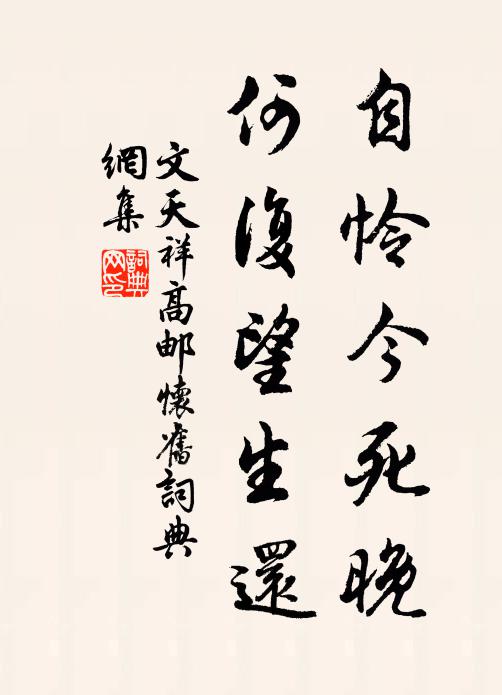 自怜今死晚
何復望生還
文天祥高邮懷舊詞典
網集
詞典
网印